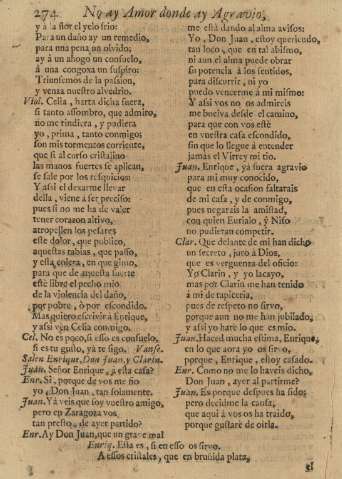 274 No ay Amor donde ay Agravio,
y a la flor el yelo frio:
Para un daño ay un remedio,
para una pena un olvido;
ay à un ahogo un consuelo,
à una congoxa un suspiro:
Triunfemos de la passion,
y venza nuestro alvedrio.
Viol. Celia, harta dicha fuera,
si tanto assombro, que admiro,
no me rindiera, y pudiera
yo, prima, tanto conmigo;
son mis tormentos corriente,
que si al corso cristalino
las manos fuertes se aplican,
se sale por los resquicios:
Y assi el dexarme llevar
della, viene à ser preciso:
pues si no me ha de valer
tener corazon altivo,
atropellen los pesares
este dolor, que publico,
aquestas rabias, que passo,
y esta colera, en que gimo,
para que de aquesta suerte
esté libre el pecho mio
de la violencia del daño,
por pobre, ò por escondido.
Mas quiero escrivir à Enrique,
y assi ven Celia conmigo.
Cel. No es poco, si esso es consuelo,
si es tu gusto, ya te sigo. Vanse.
Salen Enrique, Don Juan, y Clarin.
Juan. Señor Enrique, à esta casa?
Eur. Si, porque de vos me fio
yo, Don Juan, tan solamente.
Juan. Ya veis que soy vuestro amigo,
pero en Zaragoza vos
tan presto, de ayer partido?
Eur. Ay Don Juan, que un grave mal
me està dando al alma avisos:
Yo, Don Juan, estoy queriendo
tan loco, que en tal abismo,
ni aun el alma puede obrar
su potencia à los sentidos,
para discurrir, ni yo
puedo vencerme à mi mismo:
Y assi vos no os admireis
me buelva desde el camino,
para que con vos estè
en vuestra casa escondido,
sin que lo llegue à entender
jamas el Virrey mi tio.
Juan. Enrique, ya fuera agravio
para mi muy conocido,
que en esta ocasion saltarais
de mi casa, y de conmigo,
pues negarais la amistad,
con quien Eurialo, y Niso
no pudieran competir.
Clar. Que delante de mi han dicho
un secreto, juro à Dios,
que es verguenza del oficio:
Yo Clarin, y yo lacayo,
mas por Clarin me han tenido
à mi de tapiceria,
pues de respeto no sirvo,
porque aun no me han jubilado,
y assi yo harè lo que es mio.
Juan. Haced mucha estima, Enrique,
en lo que aora yo os sirvo,
porque, Enrique, estoy casado.
Eur. Como no me lo haveis dicho,
Don Juan, ayer al partirme?
Juan. Es porque despues ha sido;
pero decidme la causa,
que aqui à vos os ha traido,
porque gustarè de oirla.
Enriq. Esta es, si en esso os sirvo.
A essos cristales, que en bruñida plata,
el